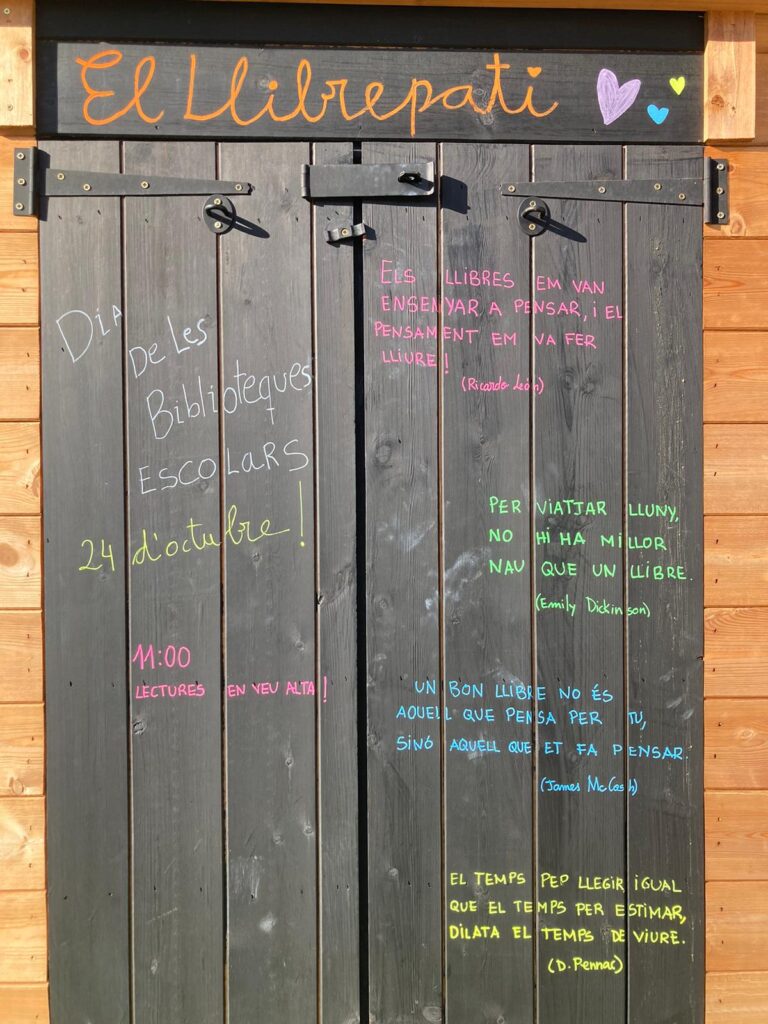 El Llibrepati
Dia
De Les
Biblioteques
ESCOLARS
24 d'octubre!
11:00
LECTURES EN VEU ALTA!
ELS LLIBRES EM VAN
ENSENYAR A PENSAR, i EL
PENSAMENT EM VA FER
LLIURE!
(Ricardo León)
PER VIATJAR LLUNY,
NO HI HA MILLOR
NAU QUE UN LLIBRE.
(Emily Dickinson)
UN BON LLIBRE NO ÉS
AQUELL QUE PENSA PER TU,
SINÓ AQUELL QUE ET FA PENSAR.
(James McCosh)
EL TEMPS PER LLEGIR iGUAL
QUE EL TEMPS PER ESTIMAR,
DILATA EL TEMPS DE VIURE.
(D. Pennac)